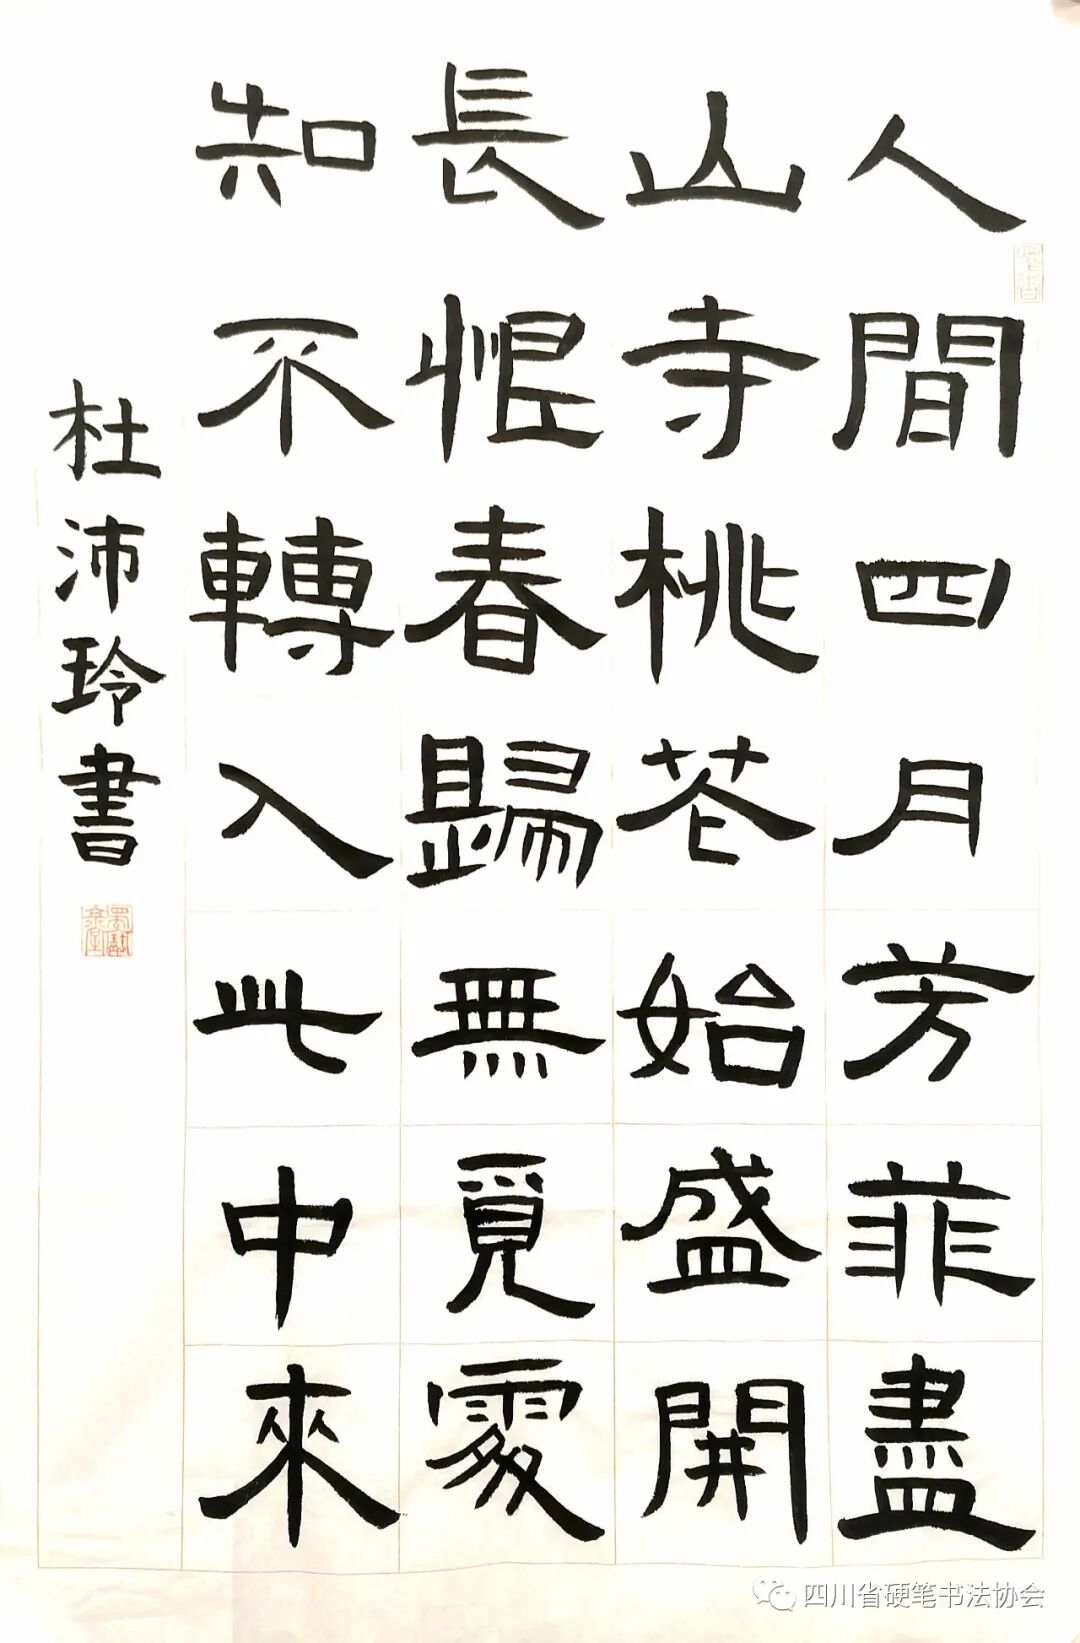 人間四月芳菲盡
山寺桃芲始盛開
長恨春歸無覓處
知不轉入此中來
杜沛玲書
四川省硬笔书法协会